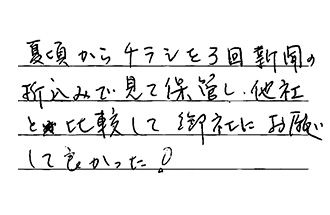 夏頃からチラシを3回新聞の
折込みで見て保管し、他社
と比較して御社にお願い
して良かった!